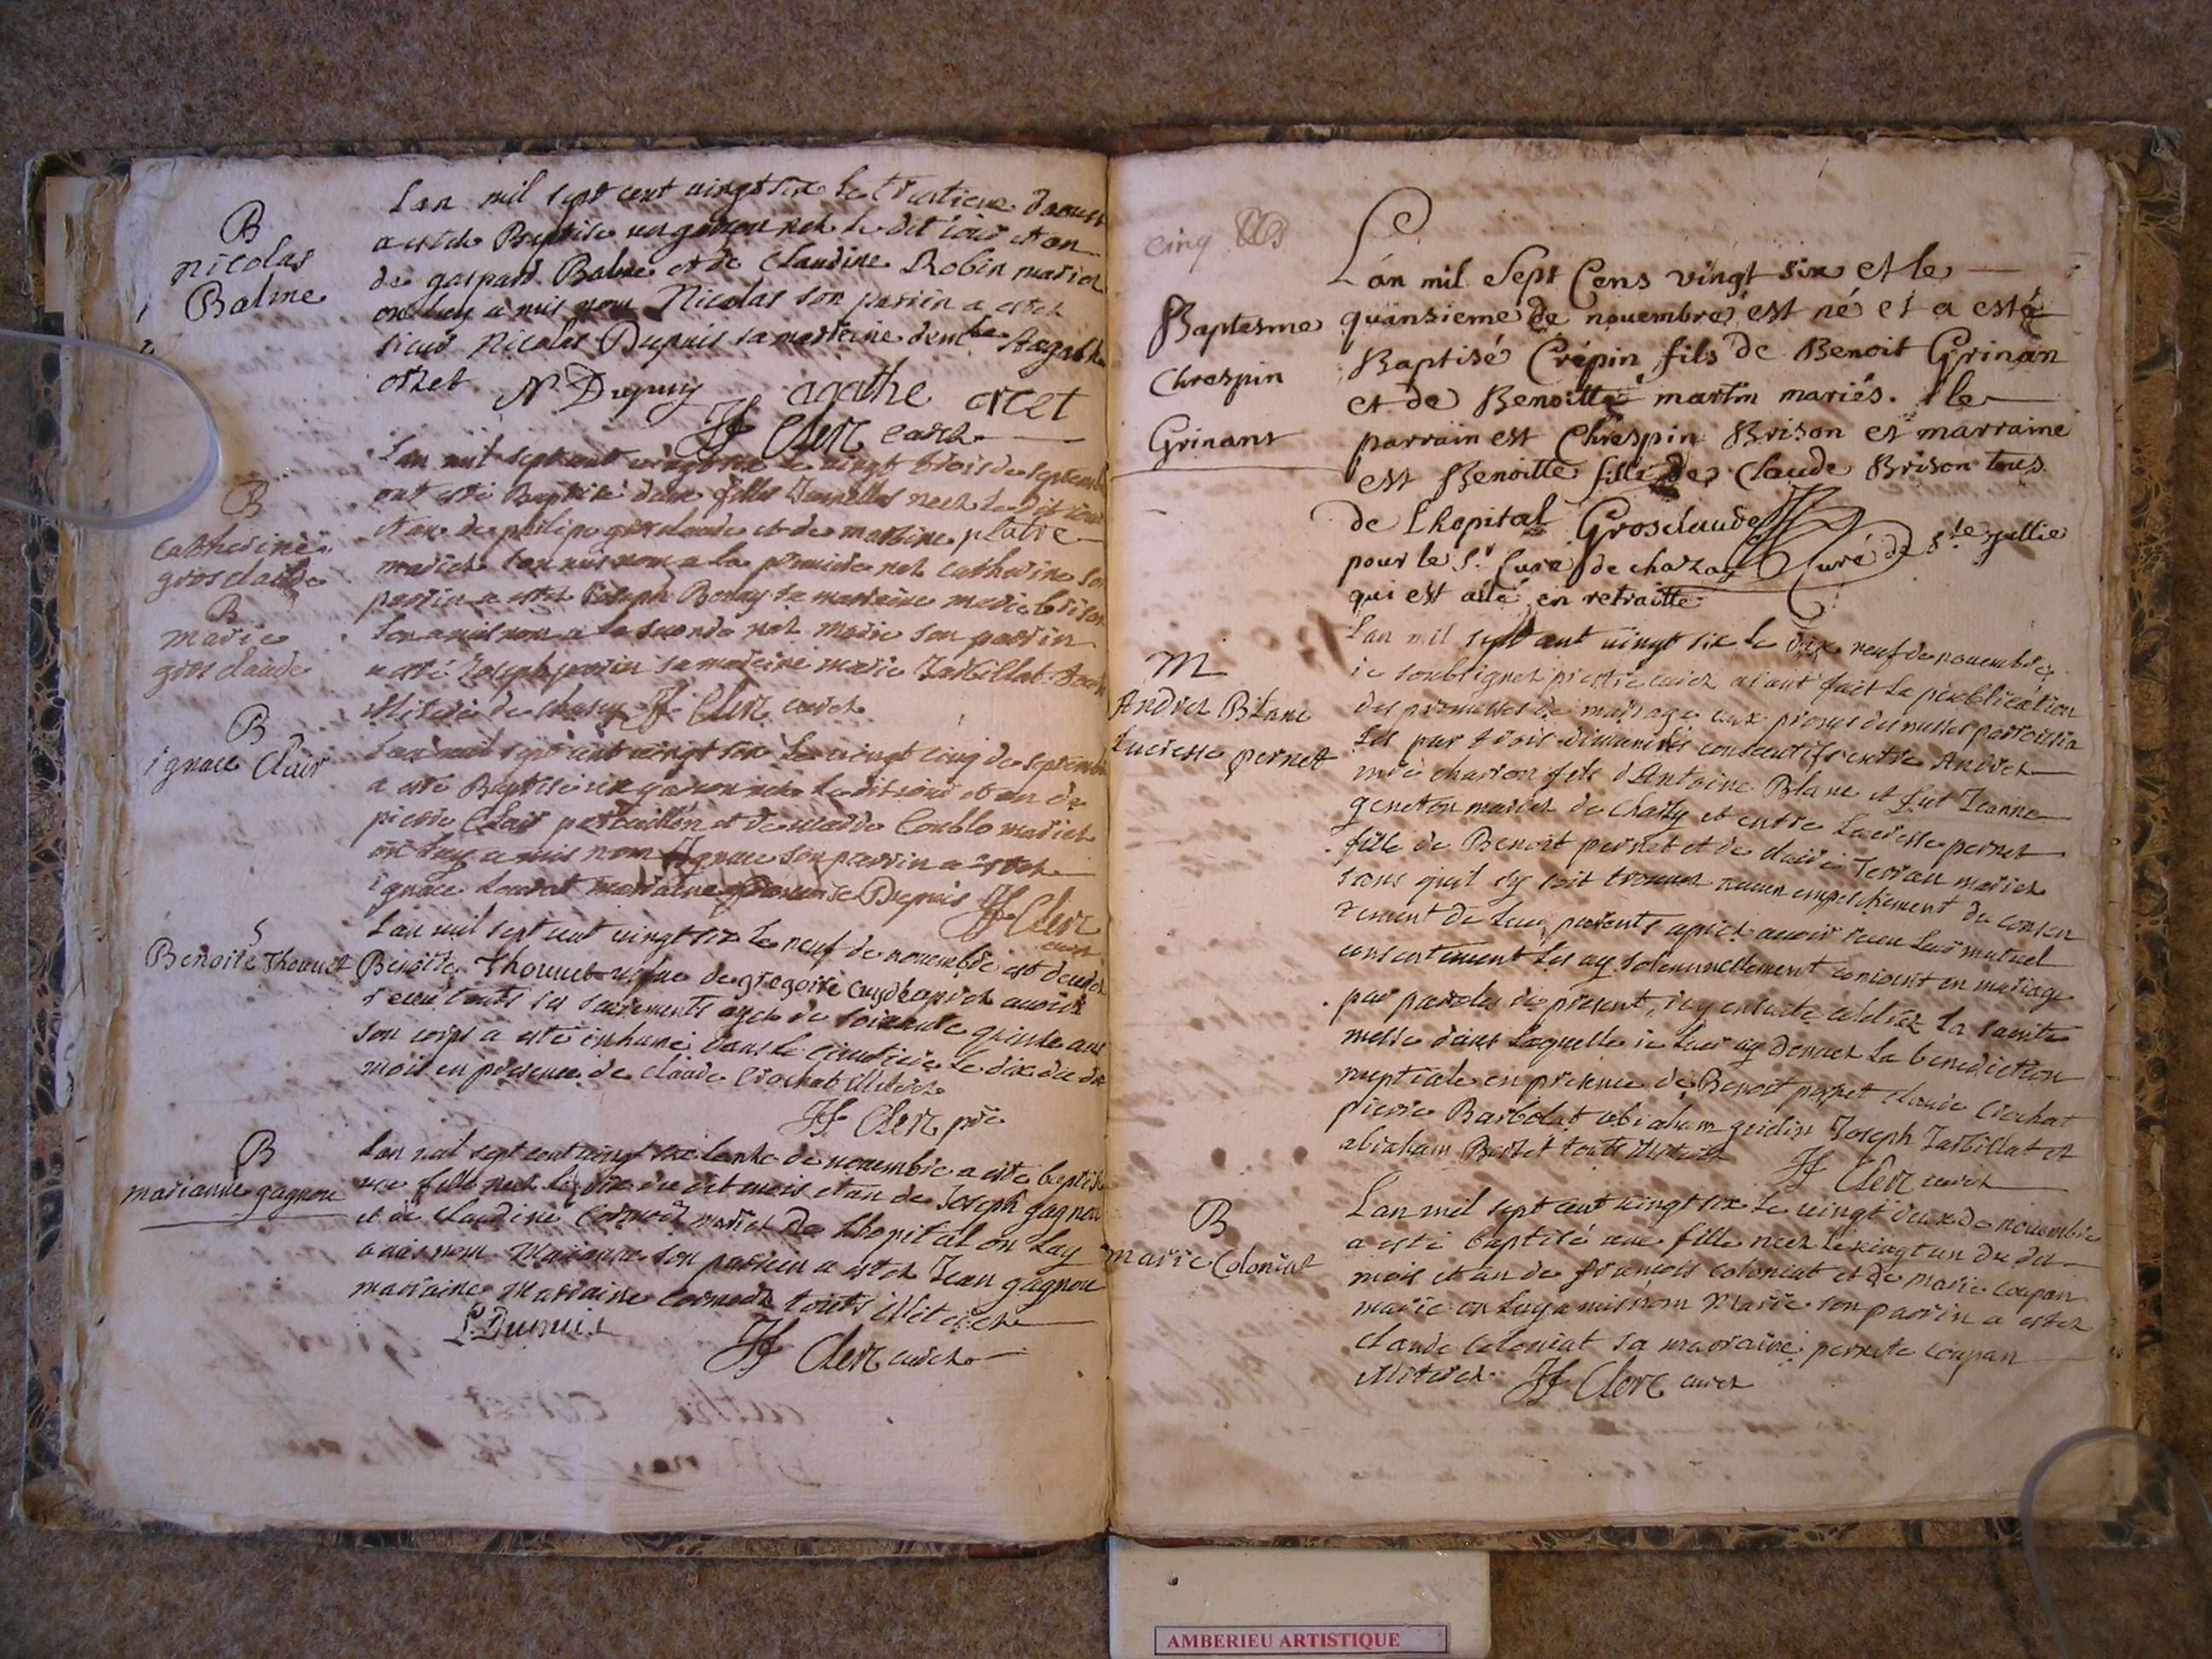 B
nicolas
Balme
Lan mil sept cent vingt six le trentieme daoust
a esté Baptise un garçon nek le dit iour et an
de gaspard Balme et de Claudine Robin mariek
on luy a mis nom Nicolas son parrin a estek
sieur Nicolas Dupuis sa marreine Agathe
orset
N Dupuy agathe orcet
Jf Clerc curek
B
Catherine
grosclaude
B
marie
grosclaude
Lan mil sept cent vingt six le vingt trois de septemb
ont esté Baptise deux filles Jumelles neek le dit iour
et an de philipe grosclaude et de martine platre
mariek lon a mis nom a la premiere nek catherine son
parrin a estek Joseph Bonay sa marraine marie brison
lon a mis nom a la seconde nek marie son parrin
a esté Joseph perrin sa mareine marie Tarbillat
illiterek de chasey Jf Clerc curek
B
ignace Clair
Lan mil sept cent vingt six le vingt cinq de septemb
a esté Baptise un garçon nek le dit iour et an de
pierre Clair et de Comble mariek
on luy a mis nom Ignace son parrin a estek
ignace marraine Dupuis Jf Clerc
curek
S
Benoite Thouuet
Lan mil sept cent vingt six le neuf de nouembre est decedek
Benoite Thouuet uefue de gregoire apres auoir
receu touts ses sacrements agek de soixante quinse ans
son corps a esté inhumé dans le cimetiere le dix du dit
mois en presence de claude Crochat illiterek
Jf Clerc
B
marianne gagneu
Lan mil sept cent vingt six le onze de nouembre a esté baptise
une fille neek le dix du dit mois et an de Joseph gagneu
et de claudine mariek de lhopital on luy
a mis nom Marianne son parrien a estek Jean gagneu
marraine Marraine touts illiterek
Jf Clerc curek
cinq
Baptesme
Chrespin
Grinant
Lan mil Sept Cens vingt six et le
quinsieme de nouembre est né et a esté
Baptisé Crépin fils de Benoit Grinan
et de Benoitte martin mariés. le
parrain est Chrespin Brison et marraine
est Benoitte fille de Claude Brison tous
de Lhopital Grosclaude
pour le Sr Curé de chazay Curé de Ste jullie
qui est allé en retraitte
M
Andrek Blanc
Lucresse pernet
Lan mil sept cent vingt six le dix neuf de nouembre
ie soubsignek prestre curek aiant fait la publication
des promesses de mariage aux prones des messes parroissia
les par trois dimanches consecutifs entre Andrek
charron fils d'Antoine Blanc et fut Jeanne
geneton mariek de chasey et entre Lucresse pernet
fille de Benoit pernet et de claire Terran mariek
sans quil sy soit trouuek aucun empeschement du consen
tement de leur parents aprek auoir receu leur mutuel
consentement les ay solennellement conioint en mariage
par paroles de present, i'ay ensuite celebrek la sainte
messe dans laquelle ie leur ay donnek la benediction
nuptiale en presence de Benoit pernet claude Crochat
pierre Barbolat abraham Joseph Tarbillat et
abraham touts illiterek
Jf Clerc curek
B
marie Coloniat
Lan mil sept cent vingt six le vingt deux de nouembre
a esté baptisé une fille neek le vingt un du dit
mois et an de françois coloniat et de marie coupan
marie on luy a mis nom Marie son parrin a estek
claude coloniat sa marraine pernete coupan
illiterek Jf Clerc curek
AMBERIEU ARTISTIQUE